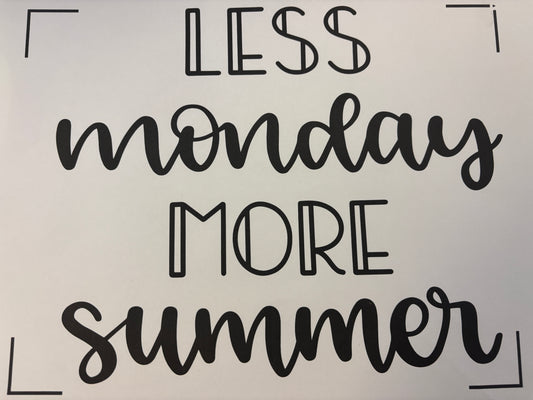 LESS
monday
MORE
summer